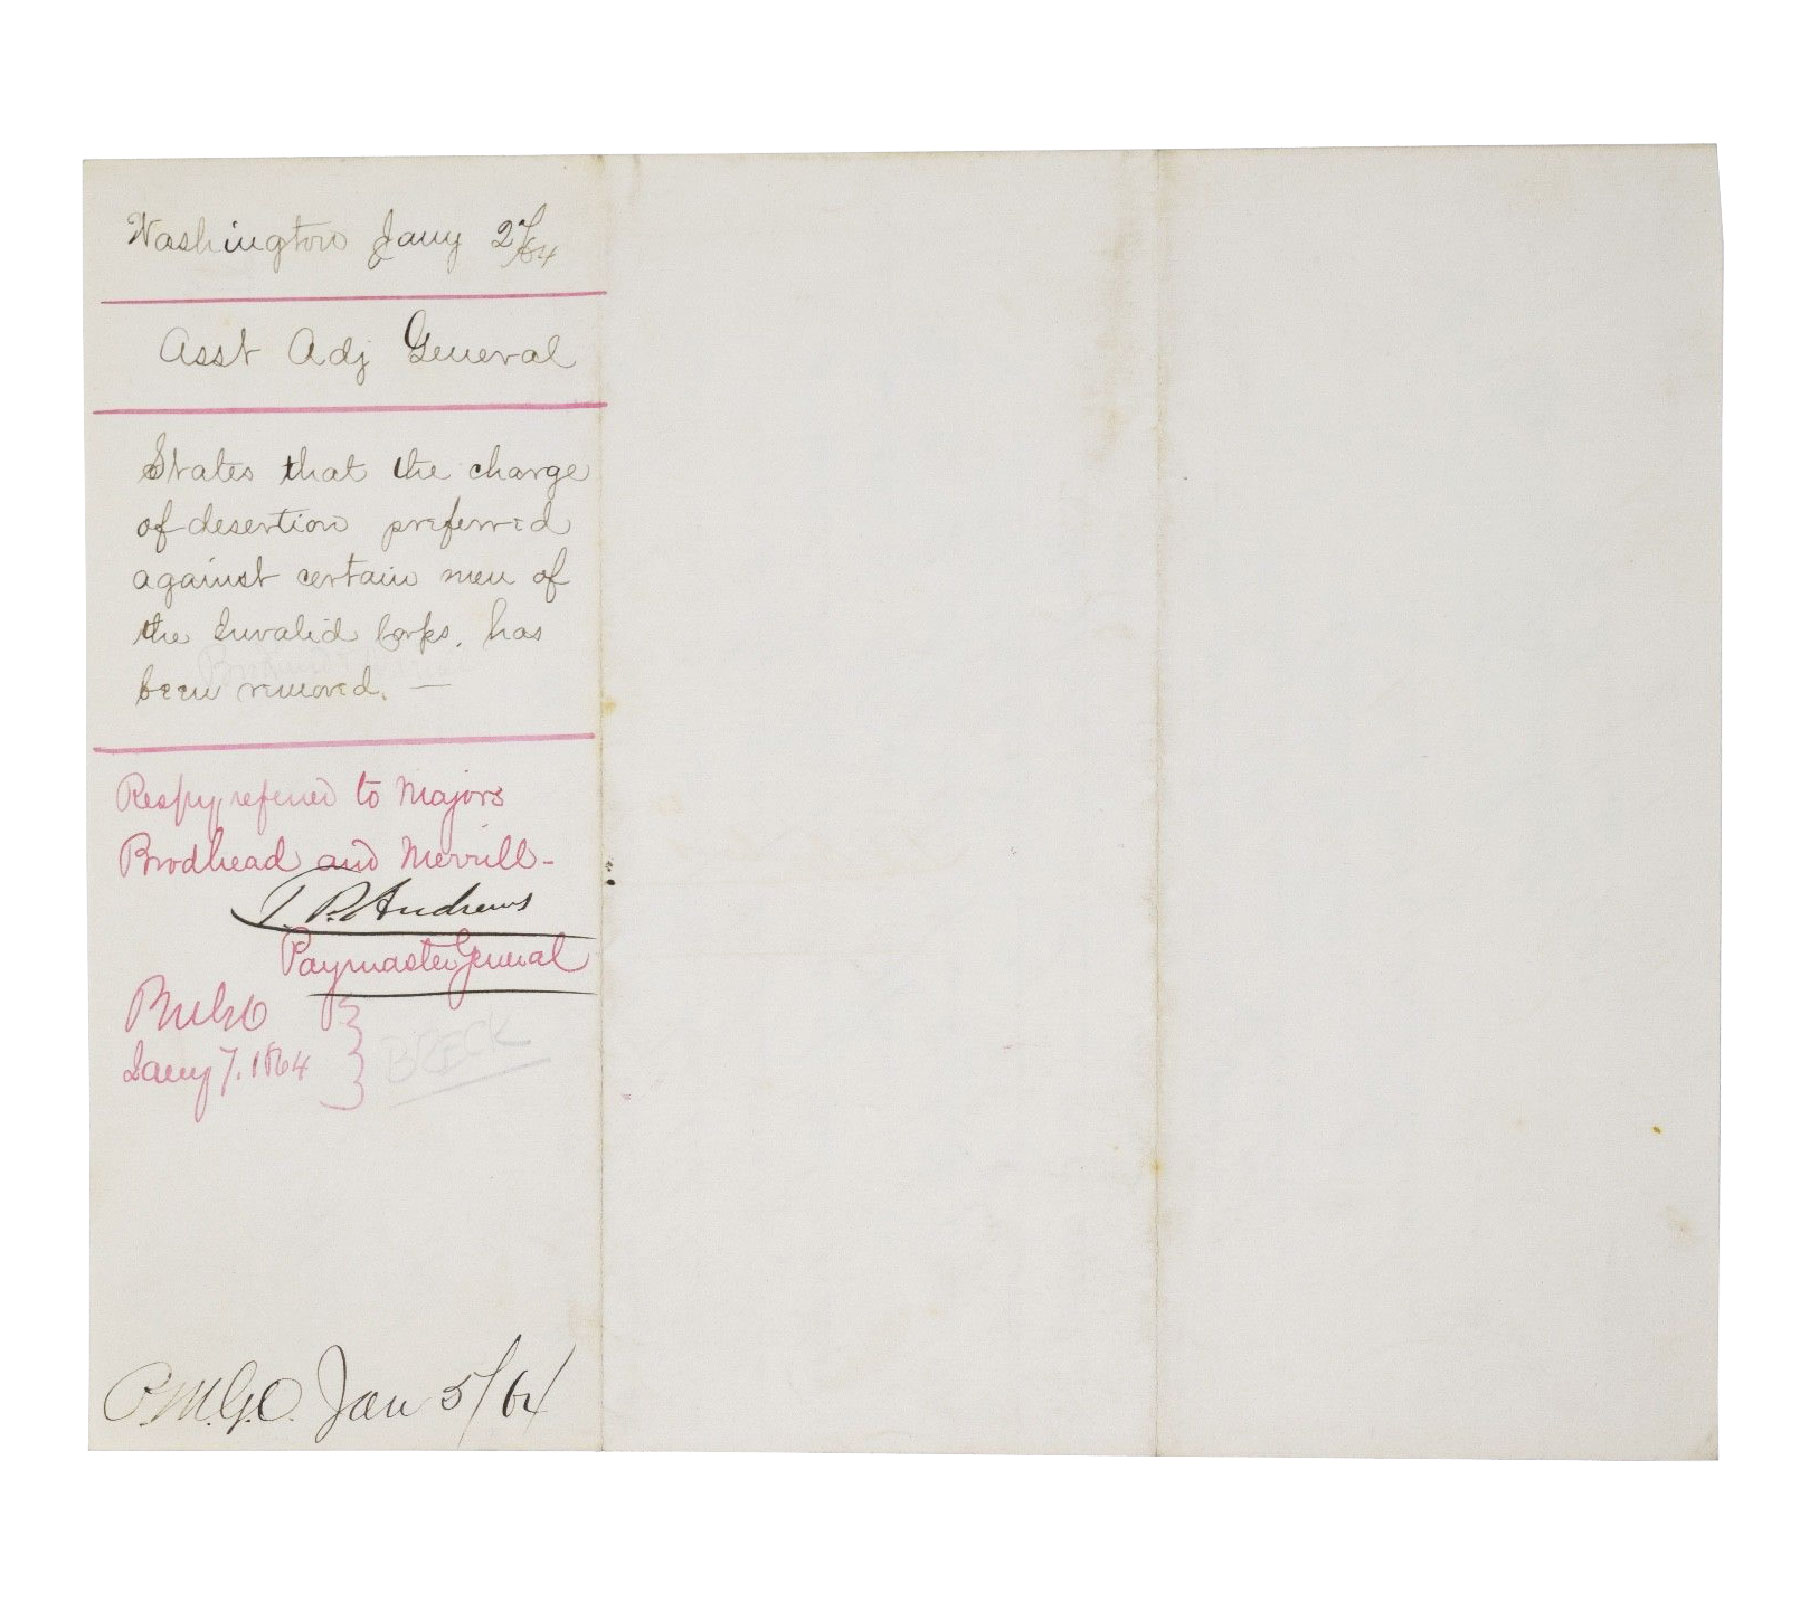 Washington Jany 2^d/64
Asst Adj General
States that the charge
of desertion preferred
against certain men of
the Invalid Corps. has
been removed. —
Respy referred to Majors
Brodhead and Merrill-
T. P. Andrews
Paymaster General
Jany 7. 1864
BRECK
P.M.G.O. Jan 5/64